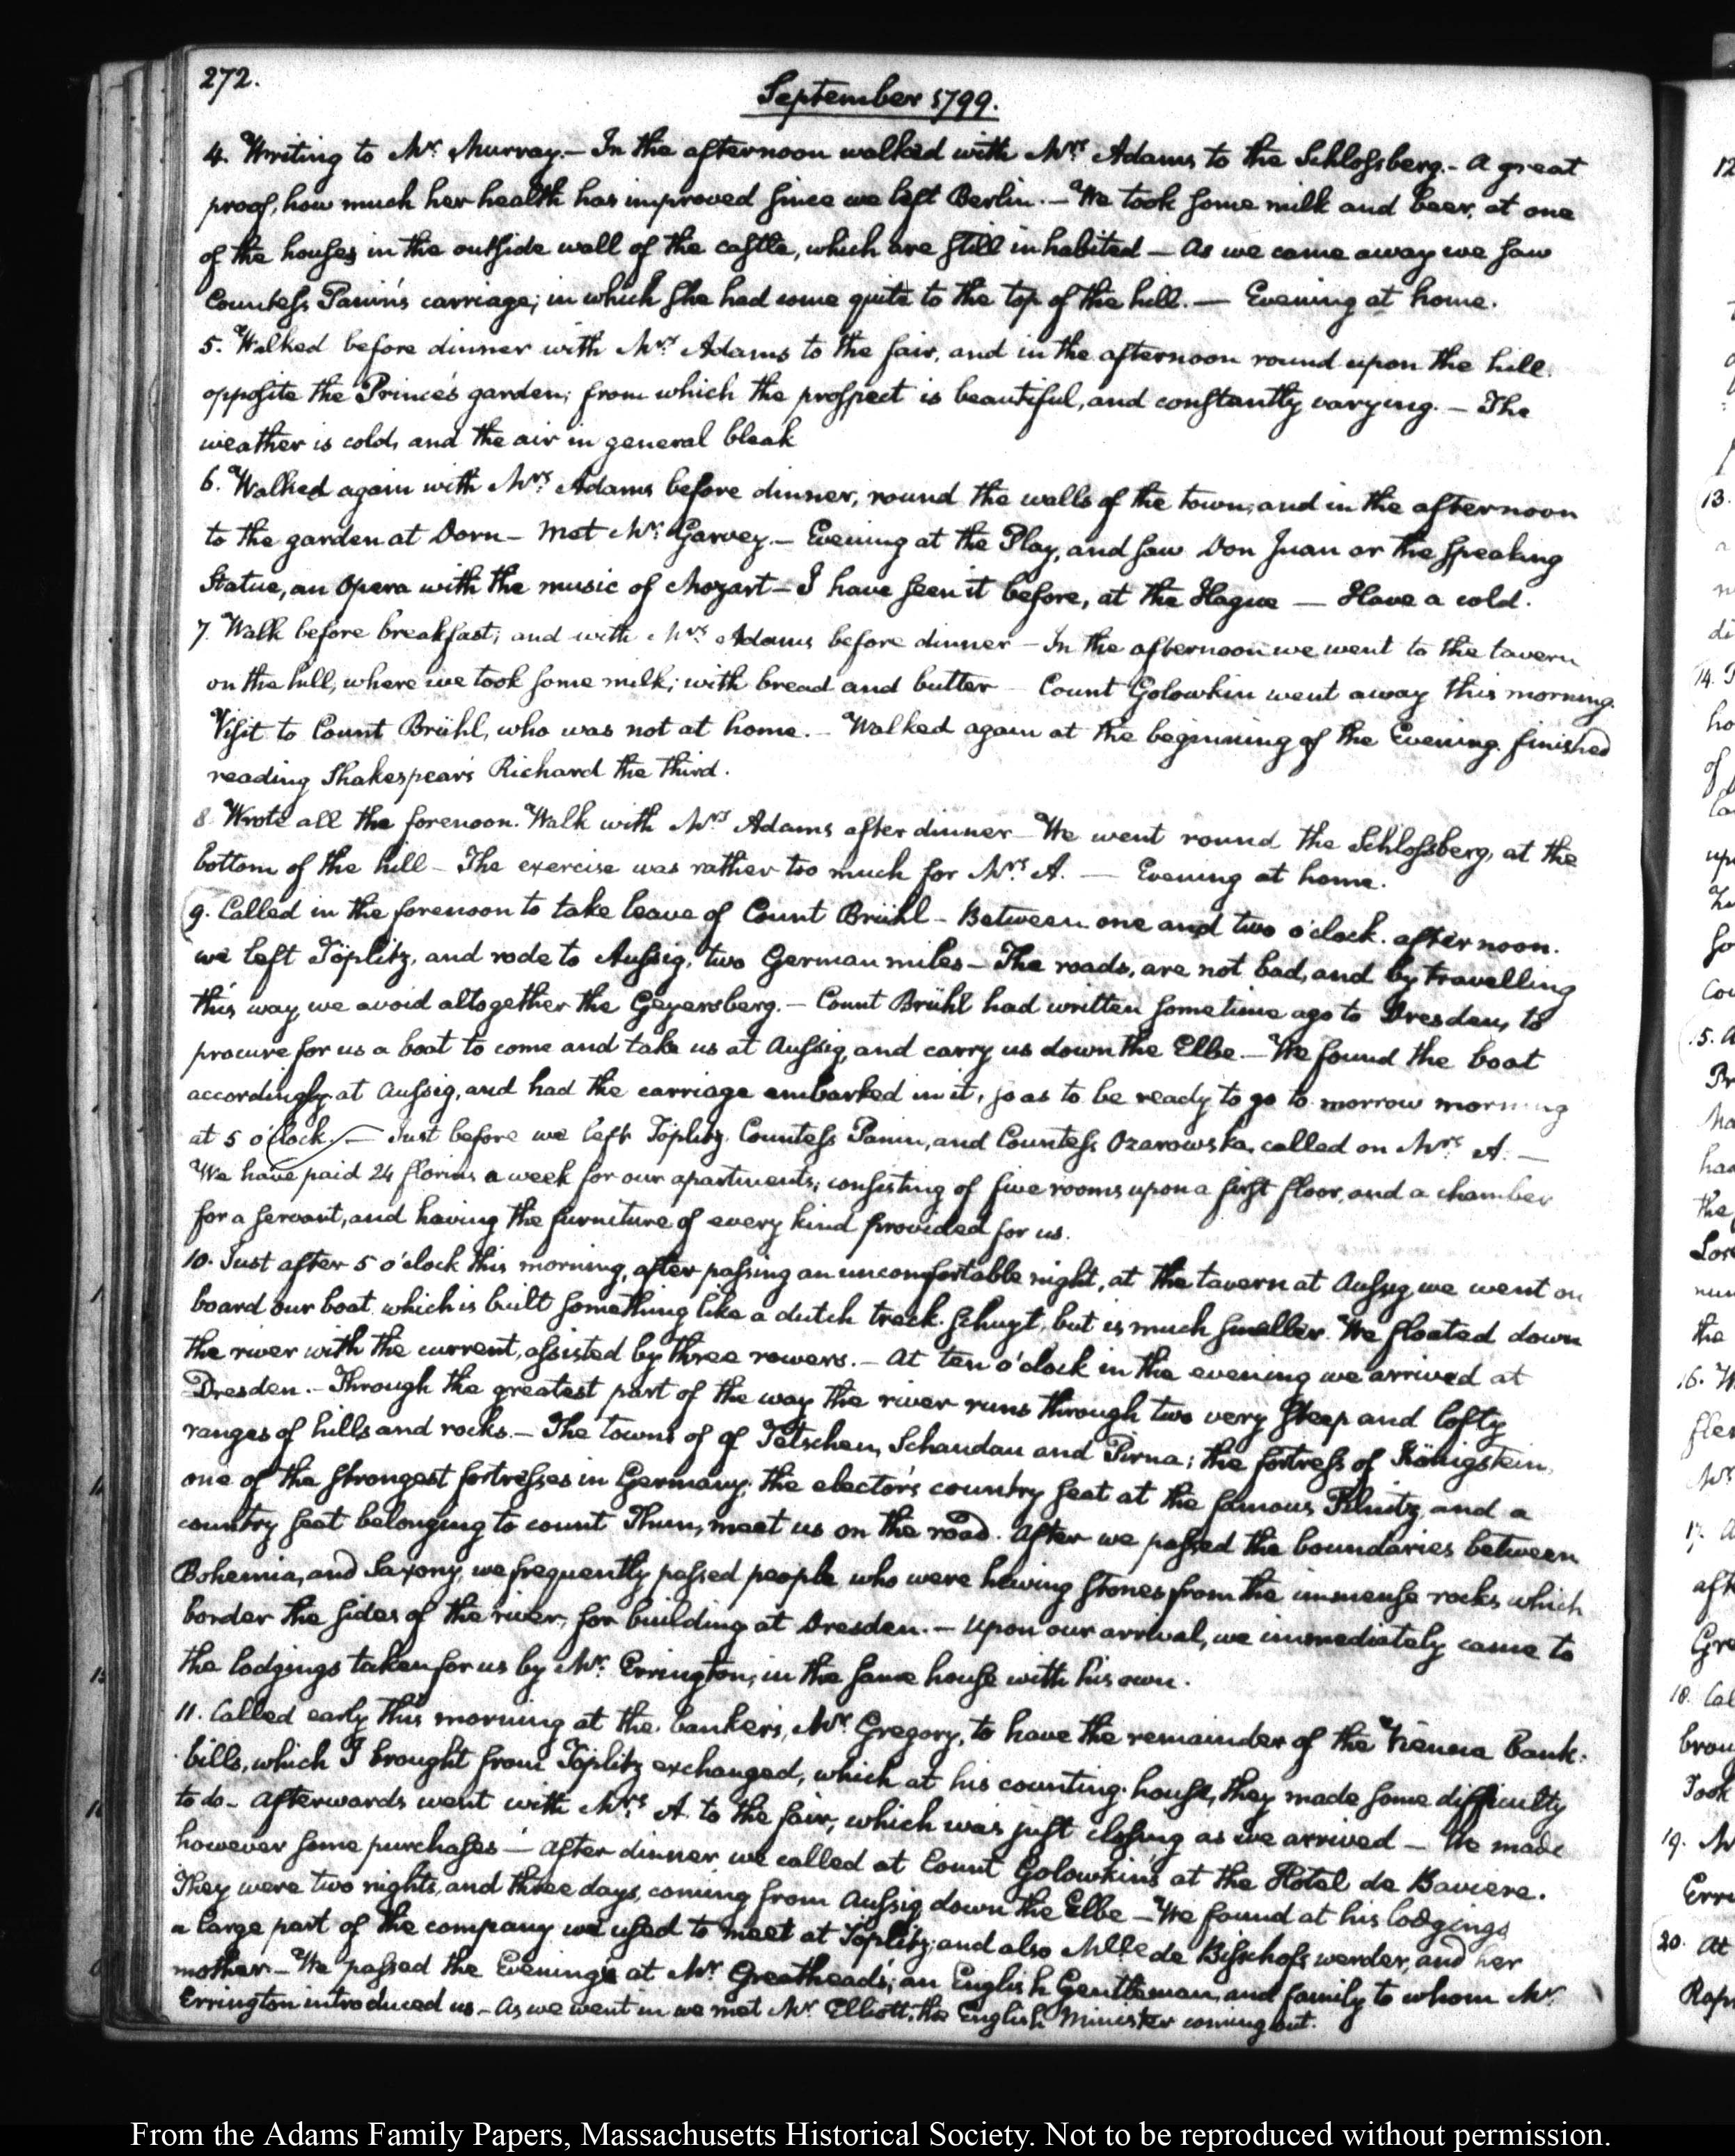 272.
September 1799.
4. Writing to Mr. Murray.— In the afternoon walked with Mrs. Adams to the Schlossberg.— A great
proof, how much her health has improved since we left Berlin.— We took some milk and beer, at one
of the houses in the outside wall of the castle, which are still inhabited — As we came away we saw
Countess Panin's carriage; in which she had come quite to the top of the hill. — Evening at home.
5. Walked before dinner with Mrs. Adams to the fair, and in the afternoon round upon the hill
opposite the Prince's garden; from which the prospect is beautiful, and constantly varying.— The
weather is cold, and the air in general bleak
6. Walked again with Mrs. Adams before dinner, round the walls of the town, and in the afternoon
to the garden at Dorn — Met Mr. Garvey.— Evening at the Play, and saw Don Juan or the speaking
Statue, an Opera with the music of Mozart — I have seen it before, at the Hague — Have a cold.
7. Walk before breakfast; and with Mrs. Adams before dinner — In the afternoon we went to the tavern
on the hill, where we took some milk; with bread and butter — Count Golowkin went away this morning.
Visit to Count Brühl, who was not at home.— Walked again at the beginning of the Evening. finished
reading Shakespear's Richard the third.
8. Wrote all the forenoon. Walk with Mrs. Adams after dinner — We went round the Schlossberg, at the
bottom of the hill — The exercise was rather too much for Mrs. A. — Evening at home.
9. Called in the forenoon to take leave of Count Brühl — Between one and two o'clock. afternoon.
we left Töplitz, and rode to Aussig, two German miles — The roads, are not bad, and by travelling
this way we avoid altogether the Geyersberg.— Count Brühl had written sometime ago to Dresden, to
procure for us a boat to come and take us at Aussig, and carry us down the Elbe.— We found the boat
accordingly at Aussig, and had the carriage embarked in it, so as to be ready to go to morrow morning
at 5 o'clock.— Just before we left Töplitz. Countess Panin, and Countess Ozarowska, called on Mrs. A.—
We have paid 24 florins a week for our apartments; consisting of five rooms upon a first floor, and a chamber
for a servant, and having the furniture of every kind provided for us.
10. Just after 5 o'clock this morning, after passing an uncomfortable night, at the tavern at Aussig we went on
board our boat which is built something like a dutch treck-schuyt, but is much smaller. We floated down
the river with the current, assisted by three rowers.— At ten o'clock in the evening we arrived at
Dresden.— Through the greatest part of the way the river runs through two very steep and lofty
ranges of hills and rocks.— The towns of of Tetschen, Schandau and Pirna; the fortress of Königstein,
one of the strongest fortresses in Germany; the elector's country seat at the famous Pilnitz, and a
country seat belonging to count Thun, meet us on the road. After we passed the boundaries between
Bohemia, and Saxony, we frequently passed people who were hewing stones from the immense rocks which
border the sides of the river, for building at Dresden.— Upon our arrival, we immediately came to
the lodgings taken for us by Mr. Errington, in the same house with his own.
11. Called early this morning at the banker's, Mr. Gregory, to have the remainder of the Vienna bank-
bills, which I brought from Töplitz exchanged, which at his counting-house, they made some difficulty
to do — Afterwards went with Mrs. A. to the fair, which was just closing as we arrived — We made
however some purchases — After dinner we called at Count Golowkin's at the Hotel de Baviere.
They were two nights, and three days, coming from Aussig down the Elbe — We found at his lodgings
a large part of the company we used to meet at Töplitz; and also Mlle. de Bischofswerder, and her
mother.— We passed the Evening at Mr. Greathead's; an English Gentleman, and family to whom Mr.
Errington introduced us — As we went in we met Mr. Elliott, the English Minister coming out.
From the Adams Family Papers, Massachusetts Historical Society. Not to be reproduced without permission.